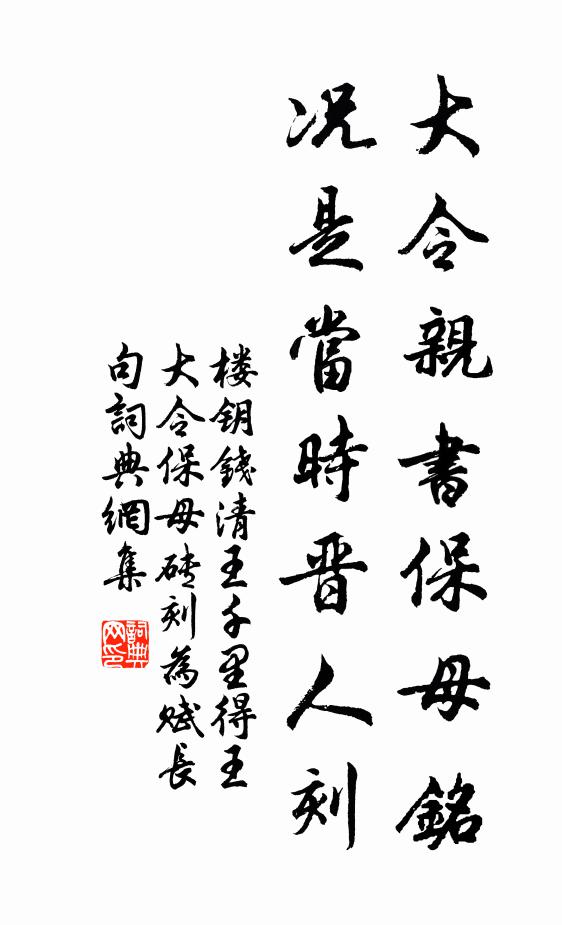 大令親書保母銘
況是當時晉人刻
楼钥錢清王千里得王
大令保母磚刻為賦長
句詞典網集
詞典網印